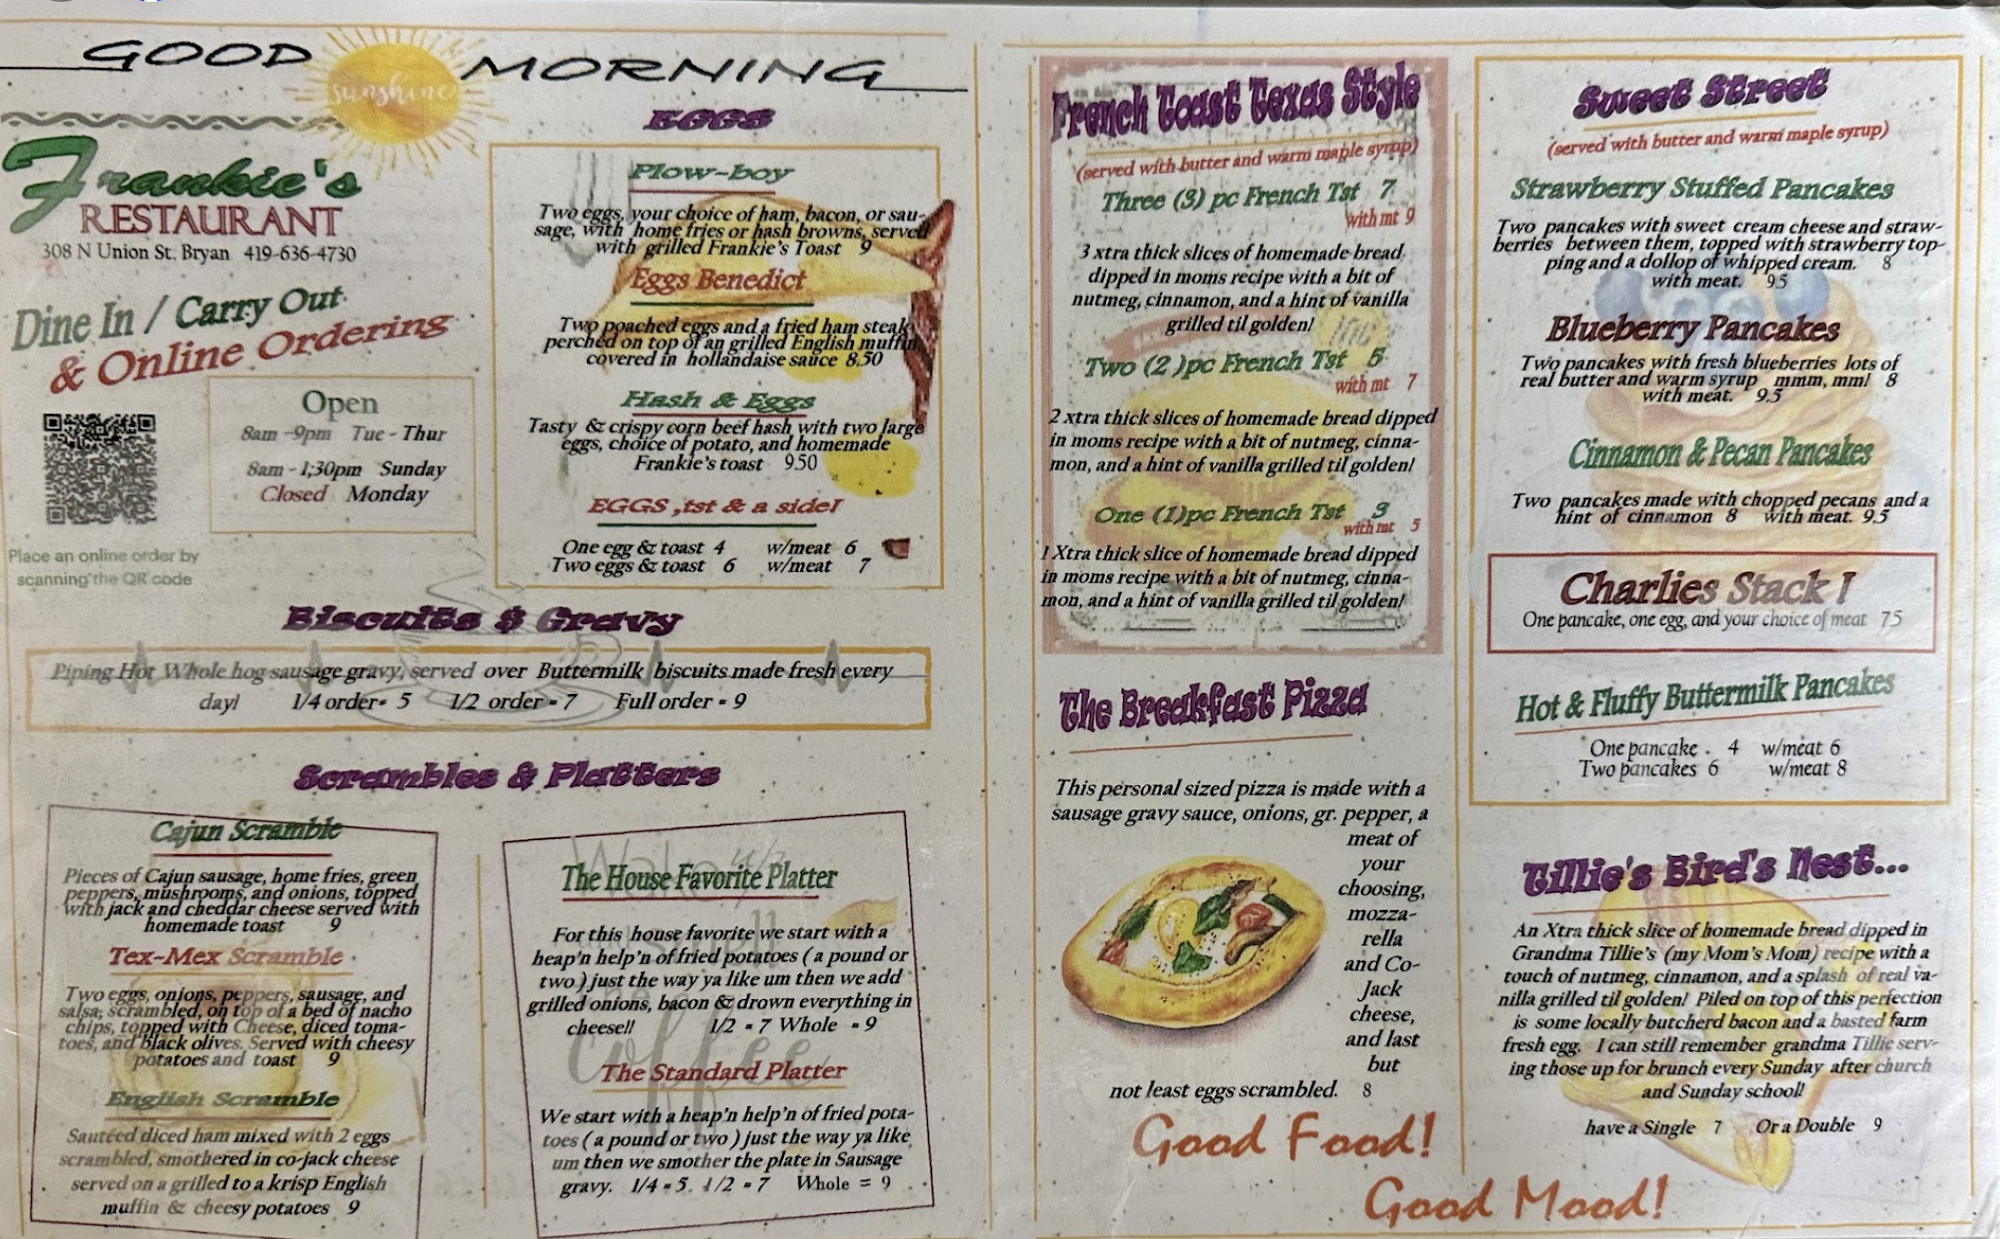 GOOD sunshine MORNING
Frankie's
RESTAURANT
308 N Union St. Bryan 419-636-4730
Dine In / Carry Out
& Online Ordering
Open
8am -9pm Tue - Thur
8am - 1;30pm Sunday
Closed Monday
Place an online order by
scanning the QR code
EGGS
Plow-boy
Two eggs, your choice of ham, bacon, or sau-
sage, with home fries or hash browns, served
with grilled Frankie's Toast 9
Eggs Benedict
Two poached eggs and a fried ham steak
perched on top of an grilled English muffin
covered in hollandaise sauce 8.50
Hash & Eggs
Tasty & crispy corn beef hash with two large
eggs, choice of potato, and homemade
Frankie's toast 9.50
EGGS ,tst & a side!
One egg & toast 4 w/meat 6
Two eggs & toast 6 w/meat 7
Biscuits $ Gravy
Piping Hot Whole hog sausage gravy, served over Buttermilk biscuits made fresh every
day! 1/4 order- 5 1/2 order - 7 Full order - 9
Scrambles & Platters
Cajun Scramble
Pieces of Cajun sausage, home fries, green
peppers, mushrooms, and onions, topped
with jack and cheddar cheese served with
homemade toast 9
Tex-Mex Scramble
Two eggs, onions, peppers, sausage, and
salsa, scrambled, on top of a bed of nacho
chips, topped with Cheese, diced toma-
toes, and black olives. Served with cheesy
potatoes and toast 9
English Scramble
Sautéed diced ham mixed with 2 eggs
scrambled, smothered in co-jack cheese
served on a grilled to a krisp English
muffin & cheesy potatoes 9
The House Favorite Platter
For this house favorite we start with a
heap'n help'n of fried potatoes ( a pound or
two ) just the way ya like um then we add
grilled onions, bacon & drown everything in
cheese!! 1/2 - 7 Whole - 9
The Standard Platter
We start with a heap'n help'n of fried pota-
toes ( a pound or two ) just the way ya like
um then we smother the plate in Sausage
gravy. 1/4 - 5 1/2 - 7 Whole = 9
French Toast Texas Style
(served with butter and warm maple syrup)
Three (3) pc French Tst 7
with mt 9
3 xtra thick slices of homemade bread
dipped in moms recipe with a bit of
nutmeg, cinnamon, and a hint of vanilla
grilled til golden!
Two (2 )pc French Tst 5
with mt 7
2 xtra thick slices of homemade bread dipped
in moms recipe with a bit of nutmeg, cinna-
mon, and a hint of vanilla grilled til golden!
One (1)pc French Tst 3
with mt 5
1 Xtra thick slice of homemade bread dipped
in moms recipe with a bit of nutmeg, cinna-
mon, and a hint of vanilla grilled til golden!
The Breakfast Pizza
This personal sized pizza is made with a
sausage gravy sauce, onions, gr. pepper, a
meat of
your
choosing,
mozza-
rella
and Co-
Jack
cheese,
and last
but
not least eggs scrambled. 8
Good Food!
Good Mood!
Sweet Street
(served with butter and warm maple syrup)
Strawberry Stuffed Pancakes
Two pancakes with sweet cream cheese and straw-
berries between them, topped with strawberry top-
ping and a dollop of whipped cream. 8
with meat. 9.5
Blueberry Pancakes
Two pancakes with fresh blueberries lots of
real butter and warm syrup mmm, mm! 8
with meat. 9.5
Cinnamon & Pecan Pancakes
Two pancakes made with chopped pecans and a
hint of cinnamon 8 with meat. 9.5
Charlies Stack !
One pancake, one egg, and your choice of meat 7.5
Hot & Fluffy Buttermilk Pancakes
One pancake . 4 w/meat 6
Two pancakes 6 w/meat 8
Tillie's Bird's Nest...
An Xtra thick slice of homemade bread dipped in
Grandma Tillie's (my Mom's Mom) recipe with a
touch of nutmeg, cinnamon, and a splash of real va-
nilla grilled til golden! Piled on top of this perfection
is some locally butcherd bacon and a basted farm
fresh egg. I can still remember grandma Tillie serv-
ing those up for brunch every Sunday after church
and Sunday school!
have a Single 7 Or a Double 9